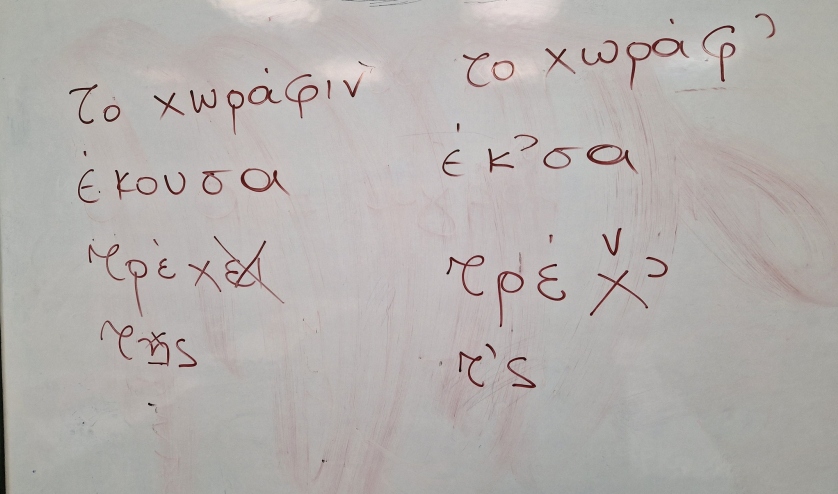 το χωράφιν το χωράφ'
έκουσα έκ'σα
τρέχει τρέχ̌'
της τ'ς